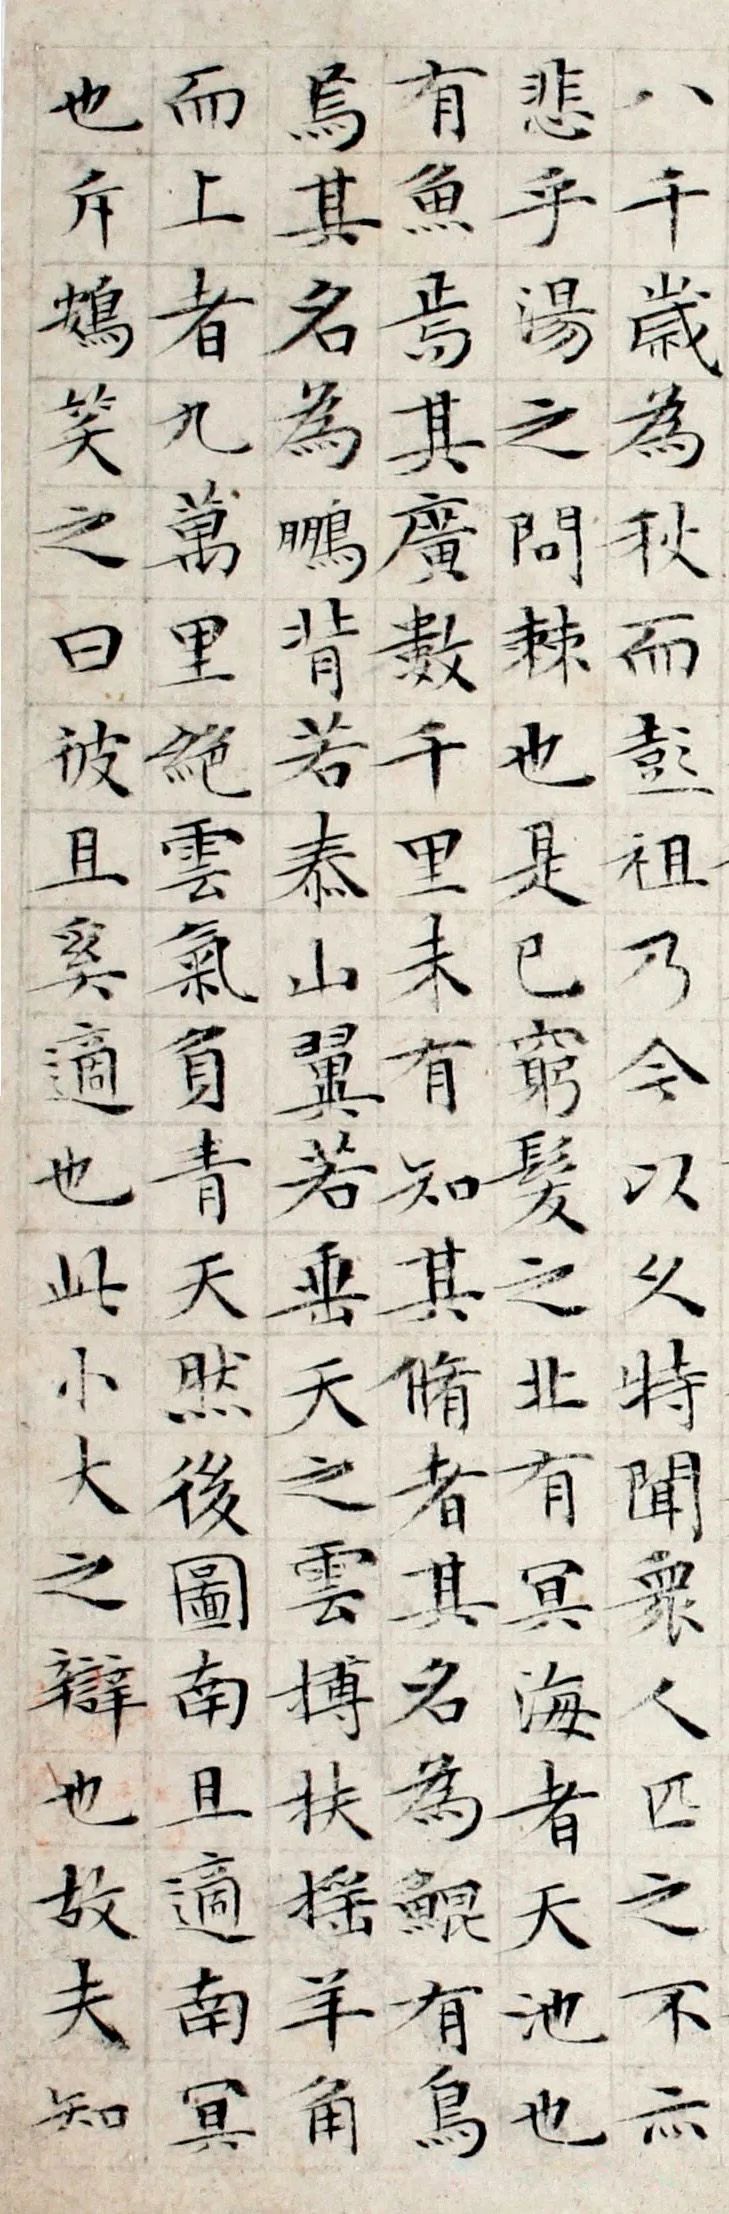 八千歲為秋而彭祖乃今以久特聞衆人匹之不亦
悲乎湯之問棘也是已窮髮之北有冥海者天池也
有魚焉其廣數千里未有知其脩者其名為鯤有鳥
焉其名為鵬背若泰山翼若垂天之雲搏扶摇羊角
而上者九萬里絶雲氣負青天然後圖南且適南冥
也斥鴳笑之曰彼且奚適也此小大之辯也故夫知